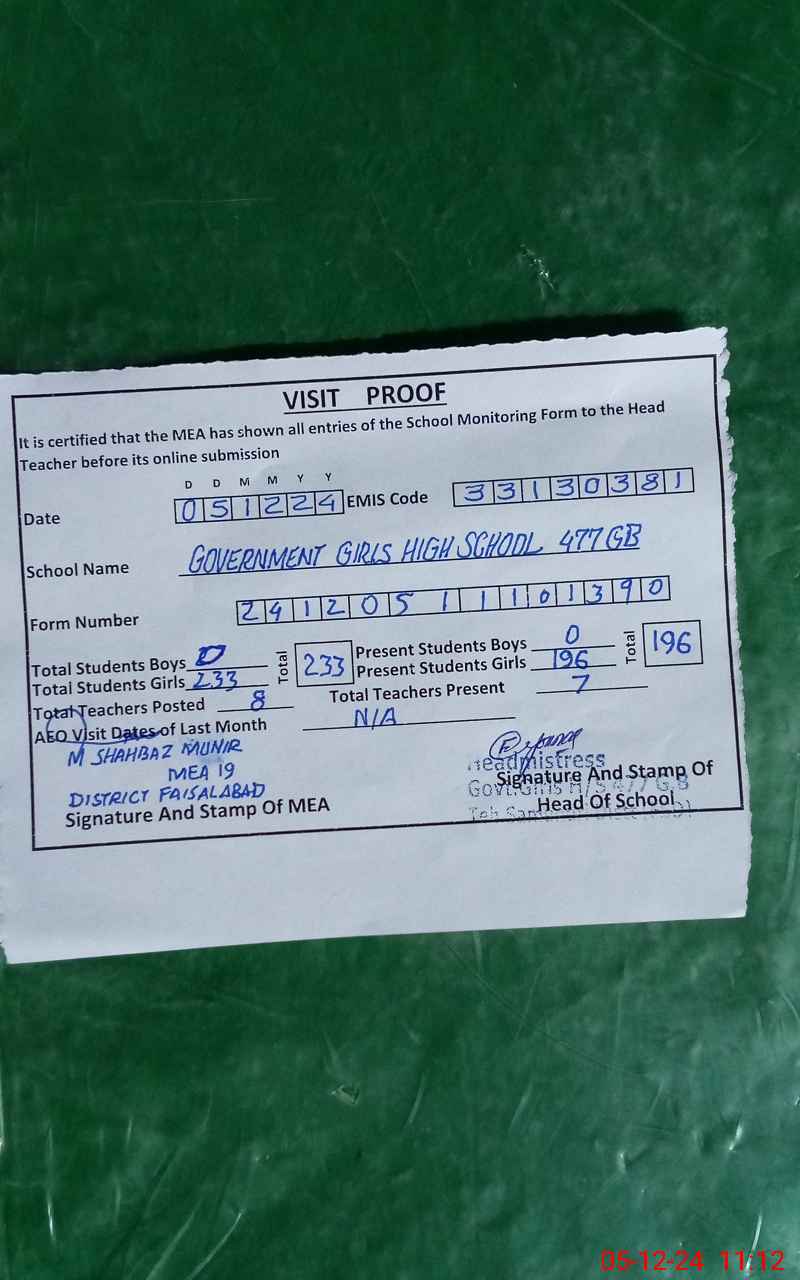 VISIT PROOF
It is certified that the MEA has shown all entries of the School Monitoring Form to the Head
Teacher before its online submission
D D M M Y Y
Date 051224 EMIS Code 33130381
School Name GOVERNMENT GIRLS HIGH SCHOOL 477 GB
Form Number 2412051101390
Total Students Boys 0 Total 233 Present Students Boys 0 Total 196
Total Students Girls 233 Present Students Girls 196
Total Teachers Posted 8 Total Teachers Present 7
AEO Visit Dates of Last Month N/A
M SHAHBAZ MUNIR
MEA 19
DISTRICT FAISALABAD
Signature And Stamp Of MEA
Headmistress
Signature And Stamp Of
Govt. Girls H/S 477 G.B
Head Of School
05-12-24 11:12